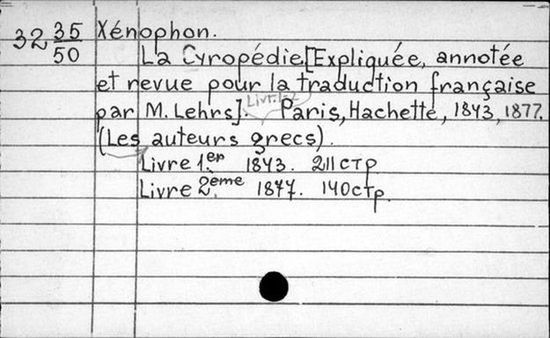 32 35/50 Xénophon.
La Cyropédie [Expliquée, annotée
et revue pour la traduction française
par M. Lehrs]. Livr. 1-2 Paris, Hachette, 1843, 1877.
(Les auteurs grecs).
Livre 1.er 1843. 211 стр
Livre 2.ème 1877. 140 стр.